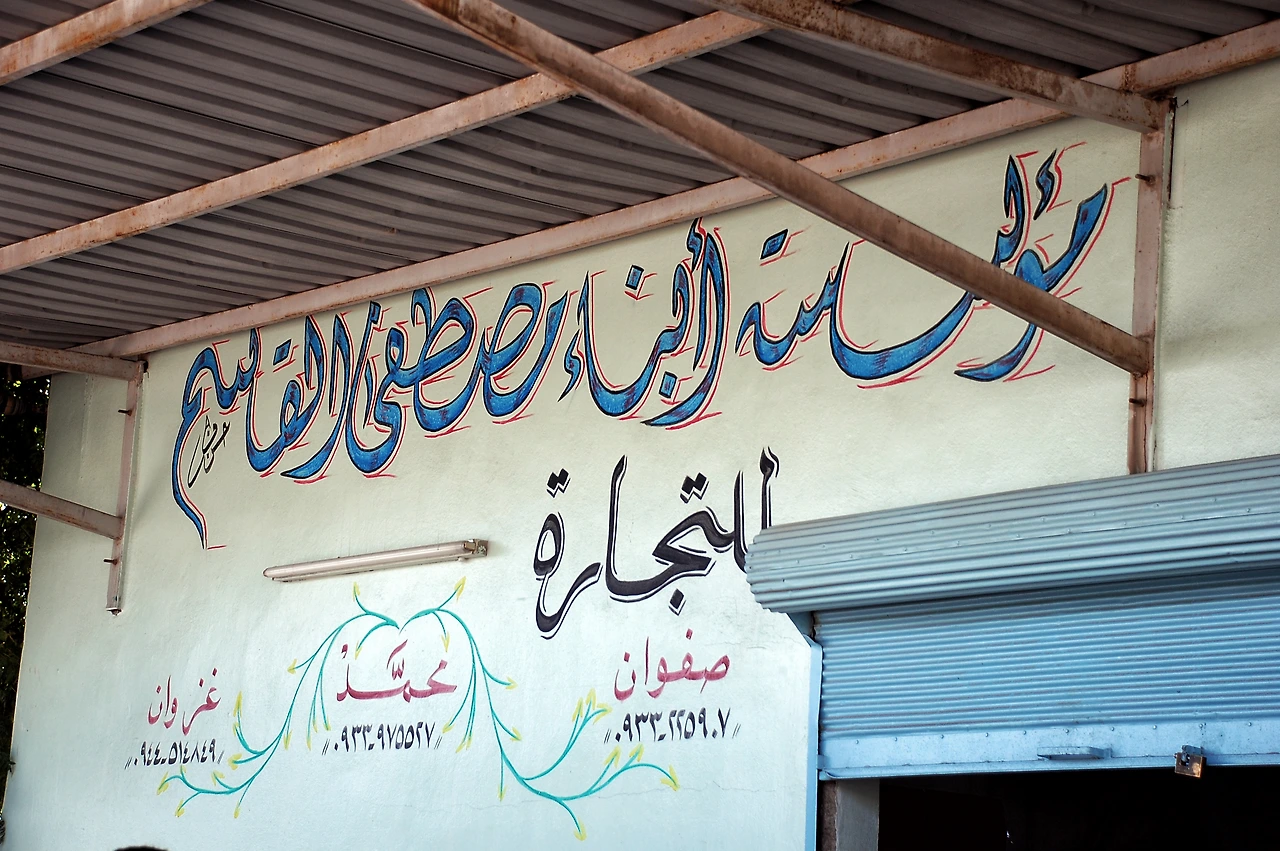 مؤسسة أبناء مصطفى القاسم
للتجارة
صفوان محمّد غزوان
٠٩٣٣-٢٢٥٩٠٧ ٠٩٣٣-٩٧٥٥٢٧ ٠٩٤٤-٥١٤٨٤٩